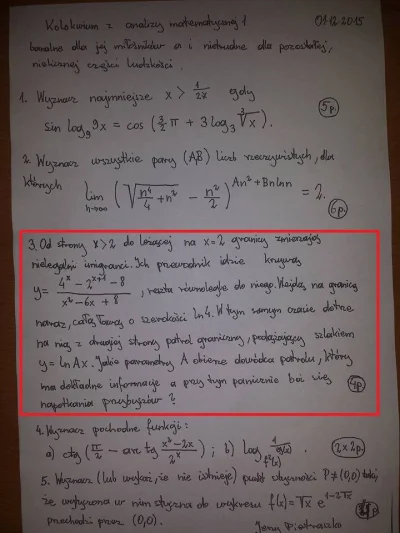 Kolokwium z analizy matematycznej 1 01.12.2015
banalne dla jej miłośników a i nietrudne dla pozostałej,
nielicznej części ludzkości.
1. Wyznacz najmniejsze x > 1/27 gdy
sin log₉ 9x = cos (3/2 π + 3 log₃ ∛x). 5p.
2. Wyznacz wszystkie pary (A,B) liczb rzeczywistych, dla
których lim n→∞ (√(n⁴/4 + n²) − n²/2)^(An² + Bn ln n) = 2. 6p.
3. Od strony x>2 do leżącej na x=2 granicy zmierzają
nielegalni imigranci. Ich przewodnik idzie krzywą
y = (4ˣ − 2ˣ⁺¹ − 8)/(x² − 6x + 8), reszta równolegle do niego. Wejdą na granicę
naraz, całą ławą o szerokości ln 4. W tym samym czasie dotrze
na nią z drugiej strony patrol graniczny, podążający szlakiem
y = ln Ax. Jakie parametry A obierze dowódca patrolu, który
ma dokładne informacje a przy tym panicznie boi się
napotkania przybyszów? 4p.
4. Wyznacz pochodne funkcji:
a) ctg (π/2 − arc tg (x³ − 2x)/2ˣ); b) log 2×2p.
5. Wyznacz (lub wykaż, że nie istnieje) punkt styczności P ≠ (0,0) taki,
że wytyczona w nim styczna do wykresu f(x) = √x e^(1−2√x)
przechodzi przez (0,0).